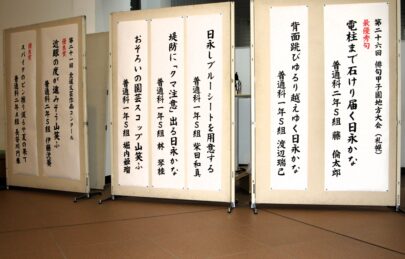 第二十六回 俳句甲子園地方大会(札幌)
最優秀句
電柱まで石けり届く日永かな
普通科二年S組 藤 倫太郎
背面跳びゆるり越えゆく日永かな
普通科一年S組 渡辺瑞己
日永しブルーシートを用意する
普通科一年S組 柴田和真
堤防に「クマ注意」出る日永かな
普通科一年S組 林 琴桂
おそろいの園芸スコップ山笑ふ
普通科一年S組 堀内
第二十一回 全道文芸作品コンクール
優良賞
近眼の度が進みそう山笑ふ
普通科一年S組
優良賞
スパイクのピン擦り減るや夏の果て
普通科二年S組 長谷川